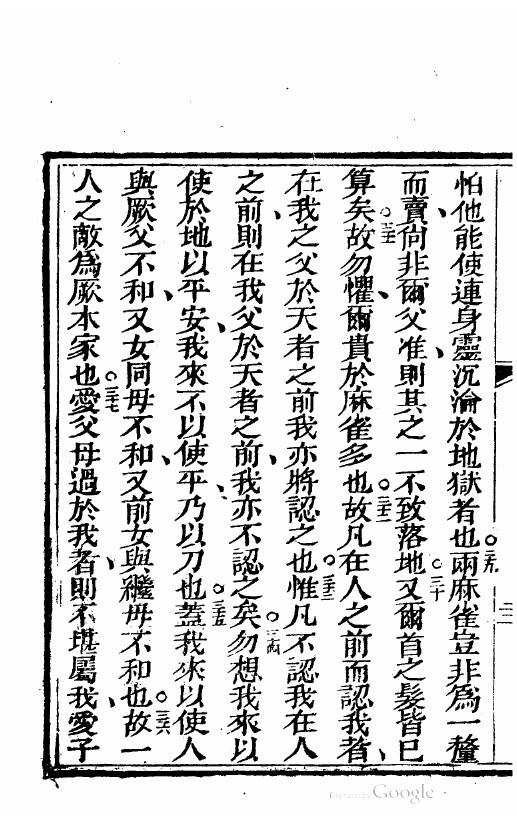 怕他、能使連身靈、沉淪於地獄者也○二九兩麻雀豈非爲一釐
而賣、尙非爾父准、則其之一不致落地○三十又爾首之髮皆已
算矣○三一故勿懼、爾貴於麻雀多也○三二故凡在人之前而認我者、
在我之父於天者之前、我亦將認之也○三三惟凡不認我在人
之前、則在我父於天者之前、我亦不認之矣○三四勿想我來以
使於地以平安、我來不以使平、乃以刀也○三五蓋我來以使人
與厥父不和、又女同母不和、又前女與繼母不和也○三六故一
人之敵爲厥本家也○三七愛父母過於我者、則不堪屬我、愛子
Digitized by Google